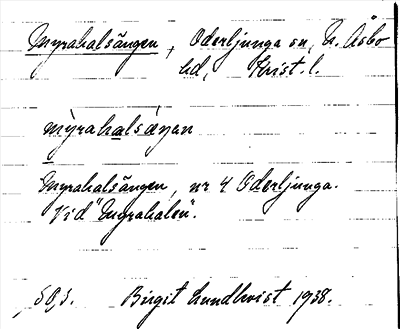 Myrahalsängen, Oderljunga sn, N. Åsbo
hd, Krist. l.
mỳrahalsæŋan
Myrahalsängen, nr 4 Oderljunga.
Vid "Myrahalen".
Birgit Lundkvist 1938.